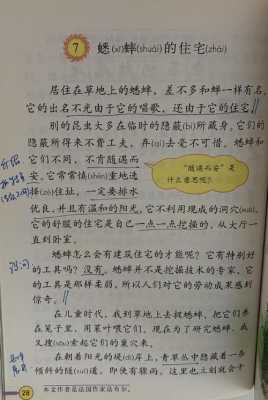 7 蟋(xī)蟀(shuài)的住宅(zhái)
居住在草地上的蟋蟀，差不多和蝉一样有名。
它的出名不光由于它的唱歌，还由于它的住宅。
别的昆虫大多在临时的隐蔽(bì)所藏身。它们的
隐蔽所得来不费工夫，弃(qì)去毫不可惜。蟋蟀和
它们不同，不肯随遇而
安。它常常慎(shèn)重地选
择(zé)住址，一定要排水
“随遇而安”是
什么意思呢？
优良，并且有温和的阳光。它不利用现成的洞穴(xué)，
它的舒服的住宅是自己一点一点挖掘的，从大厅一
直到卧室。
蟋蟀怎么会有建筑住宅的才能呢？它有特别好
的工具吗？没有。蟋蟀并不是挖掘技术的专家。它
的工具是那样柔弱，所以人们对它的劳动成果感到
惊奇。
在儿童时代，我到草地上去捉蟋蟀，把它们养
在笼子里，用菜叶喂它们。现在为了研究蟋蟀，我
又搜(sōu)索起它们的巢穴来。
在朝着阳光的堤(dī)岸上，青草丛中隐藏着一条
倾斜的隧(suì)道，即使有骤雨，这里也立刻就会干
28
本文作者是法国作家法布尔。